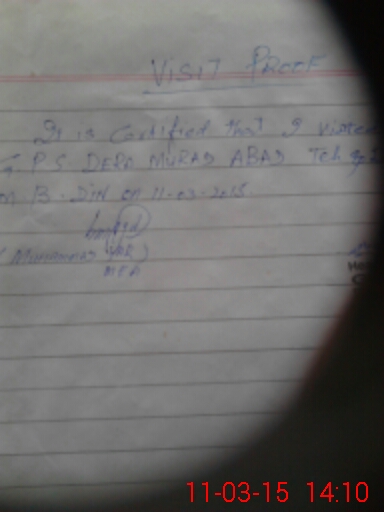 VISIT PROOF
It is Certified that I visited
G. P S DERA MURAD ABAD Teh
M. B. DIN on 11-03-2015
(Muhammad
MEA
11-03-15 14:10